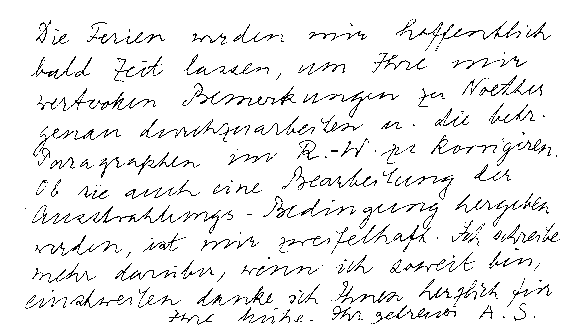 Die Ferien werden mir hoffentlich
bald Zeit lassen, um Ihre mir
wertvollen Bemerkungen zu Noether
genau durchzuarbeiten u. die betr.
Paragraphen im R.-W. zu korrigiren.
Ob sie auch eine Bearbeitung der
Ausstrahlungs-Bedingung hergeben
werden, ist mir zweifelhaft. Ich schreibe
mehr darüber, wenn ich soweit bin,
einstweilen danke ich Ihnen herzlich für
Ihre Mühe. Ihr getreuer A. S.